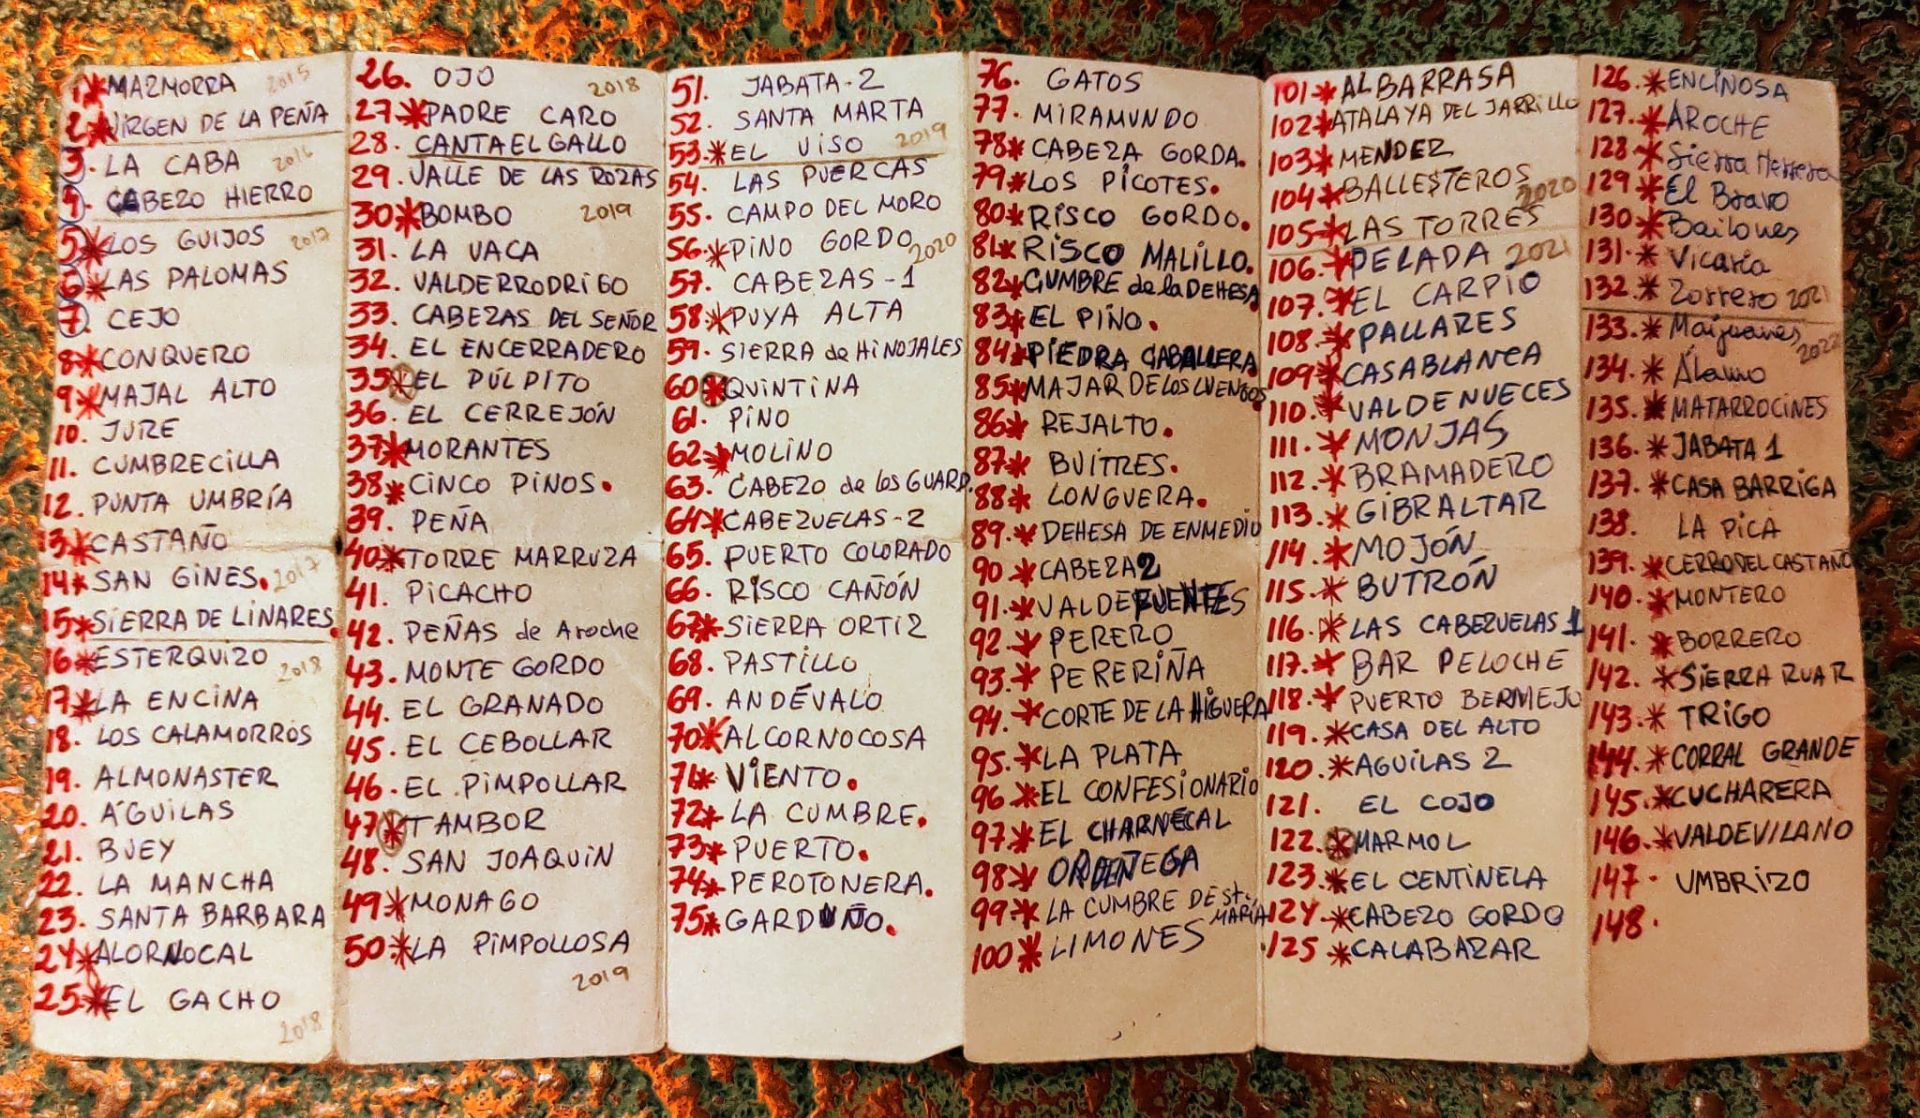 1*MAZMORRA 2015
2*VIRGEN DE LA PEÑA
3. LA CABA 2016
4. CABEZO HIERRO
5*LOS GUIJOS 2017
6*LAS PALOMAS
7. CEJO
8*CONQUERO
9*MAJAL ALTO
10. JURE
11. CUMBRECILLA
12. PUNTA UMBRÍA
13*CASTAÑO
14*SAN GINES. 2017
15*SIERRA DE LINARES.
16*ESTERQUIZO 2018
17*LA ENCINA
18. LOS CALAMORROS
19. ALMONASTER
20. AGUILAS
21. BUEY
22. LA MANCHA
23. SANTA BARBARA
24*ALORNOCAL
25*EL GACHO
2018
26. OJO 2018
27*PADRE CARO
28. CANTAELGALLO
29. VALLE DE LAS ROZAS
30*BOMBO 2019
31. LA VACA
32. VALDERRODRIGO
33. CABEZAS DEL SEÑOR
34. EL ENCERRADERO
35*EL PÚLPITO
36. EL CERREJÓN
37*MORANTES
38*CINCO PINOS.
39. PEÑA
40*TORRE MARRUZA
41. PICACHO
42. PEÑAS de Aroche
43. MONTE GORDO
44. EL GRANADO
45. EL CEBOLLAR
46. EL PIMPOLLAR
47*TAMBOR
48. SAN JOAQUÍN
49*MONAGO
50.*LA PIMPOLLOSA
2019
51. JABATA-2
52. SANTA MARTA
53.*EL VISO 2019
54. LAS PUERCAS
55. CAMPO DEL MORO
56.*PINO GORDO 2020
57. CABEZAS-1
58.*PUYA ALTA
59. SIERRA de HINOJALES
60*QUINTINA
61. PINO
62.*MOLINO
63. CABEZO de los GUARD.
64*CABEZUELAS-2
65. PUERTO COLORADO
66. RISCO CAÑÓN
67*SIERRA ORTIZ
68. PASTILLO
69. ANDÉVALO
70*ALCORNOCOSA
71* VIENTO.
72* LA CUMBRE.
73* PUERTO.
74* PEROTONERA.
75* GARDUÑO.
76. GATOS
77. MIRAMUNDO
78* CABEZA GORDA.
79*LOS PICOTES.
80*RISCO GORDO.
81*RISCO MALILLO.
82*CUMBRE de la DEHESA
83* EL PINO.
84*PIEDRA CABALLERA
85*MAJAR DE LOS LUENGOS
86* REJALTO.
87* BUITRES.
88* LONGUERA.
89.* DEHESA DE ENMEDIO
90.*CABEZA2
91.*VALDEFUENTES
92.* PERERO
93.* PERERIÑA
94.*CORTE DE LA HIGUERA
95.*LA PLATA
96.*EL CONFESIONARIO
97.*EL CHARNECAL
98* ORDENTEGA
99.* LA CUMBRE DE St. MARIA
100* LIMONES
101*ALBARRASA
102*ATALAYA DEL JARRILLO
103*MENDEZ
104*BALLESTEROS 2020
105*LAS TORRES
106.*PELADA 2021
107.*EL CARPIO
108.*PALLARES
109*CASABLANCA
110.*VALDENUECES
111.*MONJAS
112.*BRAMADERO
113.*GIBRALTAR
114.*MOJÓN
115.* BUTRÓN
116.*LAS CABEZUELAS 1
117.* BAR PELOCHE
118.* PUERTO BERMEJO
119.*CASA DEL ALTO
120.*AGUILAS 2
121. EL COJO
122.*MARMOL
123.*EL CENTINELA
124.*CABEZO GORDO
125 *CALABAZAR
126.*ENCINOSA
127.*AROCHE
128*Sierra Herrera
129*El Bravo
130*Bailones
131.* Vicaría
132.* Zorrero 2021
133.* Maijuanes 2022
134.* Álamo
135.*MATARROCINES
136.*JABATA 1
137.*CASA BARRIGA
138. LA PICA
139.*CERRO DEL CASTAÑO
140.*MONTERO
141.*BORRERO
142.*SIERRA RUAR
143.* TRIGO
144.*CORRAL GRANDE
145.*CUCHARERA
146.*VALDEVILANO
147. UMBRIZO
148.